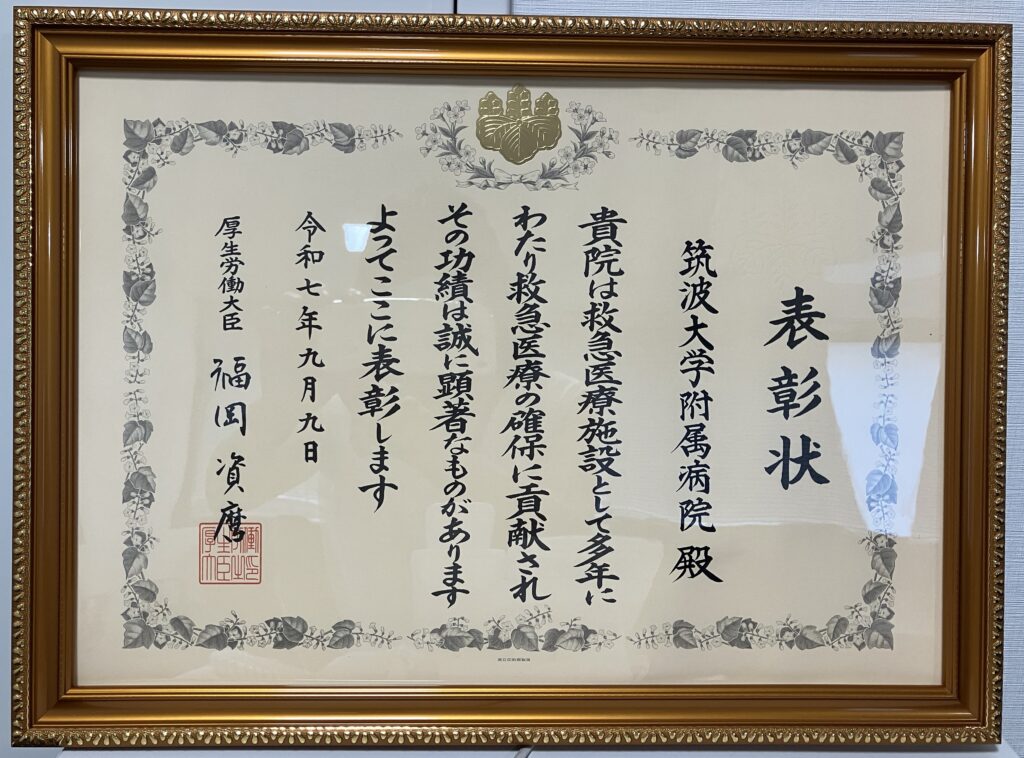 表彰状
筑波大学附属病院 殿
貴院は救急医療施設として多年に
わたり救急医療の確保に貢献され
その功績は誠に顕著なものがあります
よってここに表彰します
令和七年九月九日
厚生労働大臣 福岡資麿